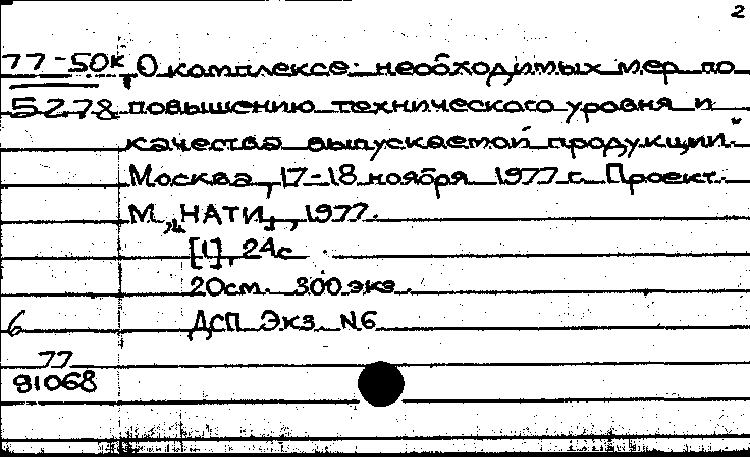 2
77-50к „О комплексе необходимых мер по
5278 повышению технического уровня и
качества выпускаемой продукции."
Москва, 17-18 ноября 1977 г. Проект.
М., НАТИ, 1977.
[1], 24с.
20см. 300 экз.
6 ДСП Экз. N6
77
91068